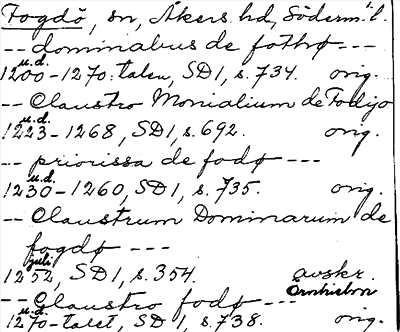 Fogdö, sn, Åkers hd, Söderm. l.
-- dominabus de fothø ---
u.d.
1200-1270-talen, SD1, s. 734. orig.
-- Claustro Monialium de Fodijo
u.d.
1223-1268, SD1, s. 692. orig.
-- priorissa de fodø ---
u.d.
1230-1260, SD1, s. 735. orig.
-- Claustrum Dominarum de
fogdø ---
juli
1252, SD1, s. 354. avskr.
Örnhielm
-- Claustro fodø ---
u.d.
1270-talet, SD1, s. 738. orig.